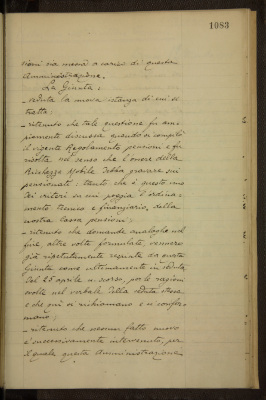 1083
sioni sia messa a carico di questa
Amministrazione.
La Giunta:
- veduta la nuova istanza di cui si
tratta;
- ritenuto che tale questione fu am-
piamente discussa quando si compilò
il vigente Regolamento pensioni e fu
risolta nel senso che l'onere della
Ricchezza Mobile debba gravare sui
pensionati: tanto che è questo uno
dei criteri su cui poggia l'ordina-
mento tecnico e finanziario, della
nostra Cassa pensioni;
- ritenuto che domande analoghe nel
fine, altre volte formulate, vennero
già ripetutamente respinte da questa
Giunta come ultimamente in seduta
del 25 aprile u. scorso, per le ragioni
svolte nel verbale della seduta stessa
e che qui si richiamano e si confer-
mano;
- ritenuto che nessun fatto nuovo
è successivamente intervenuto, per
il quale questa Amministrazione